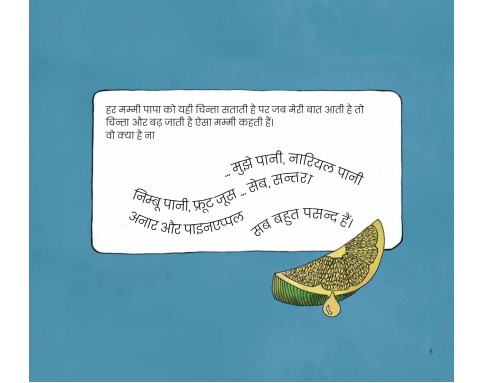 हर मम्मी पापा को यही चिन्ता सताती है पर जब मेरी बात आती है तो
चिन्ता और बढ़ जाती है ऐसा मम्मी कहती हैं।
वो क्या है ना
... मुझे पानी, नारियल पानी
निम्बू पानी, फ्रूट जूस ... सेब, सन्तरा
अनार और पाइनएप्पल
सब बहुत पसन्द हैं।
3